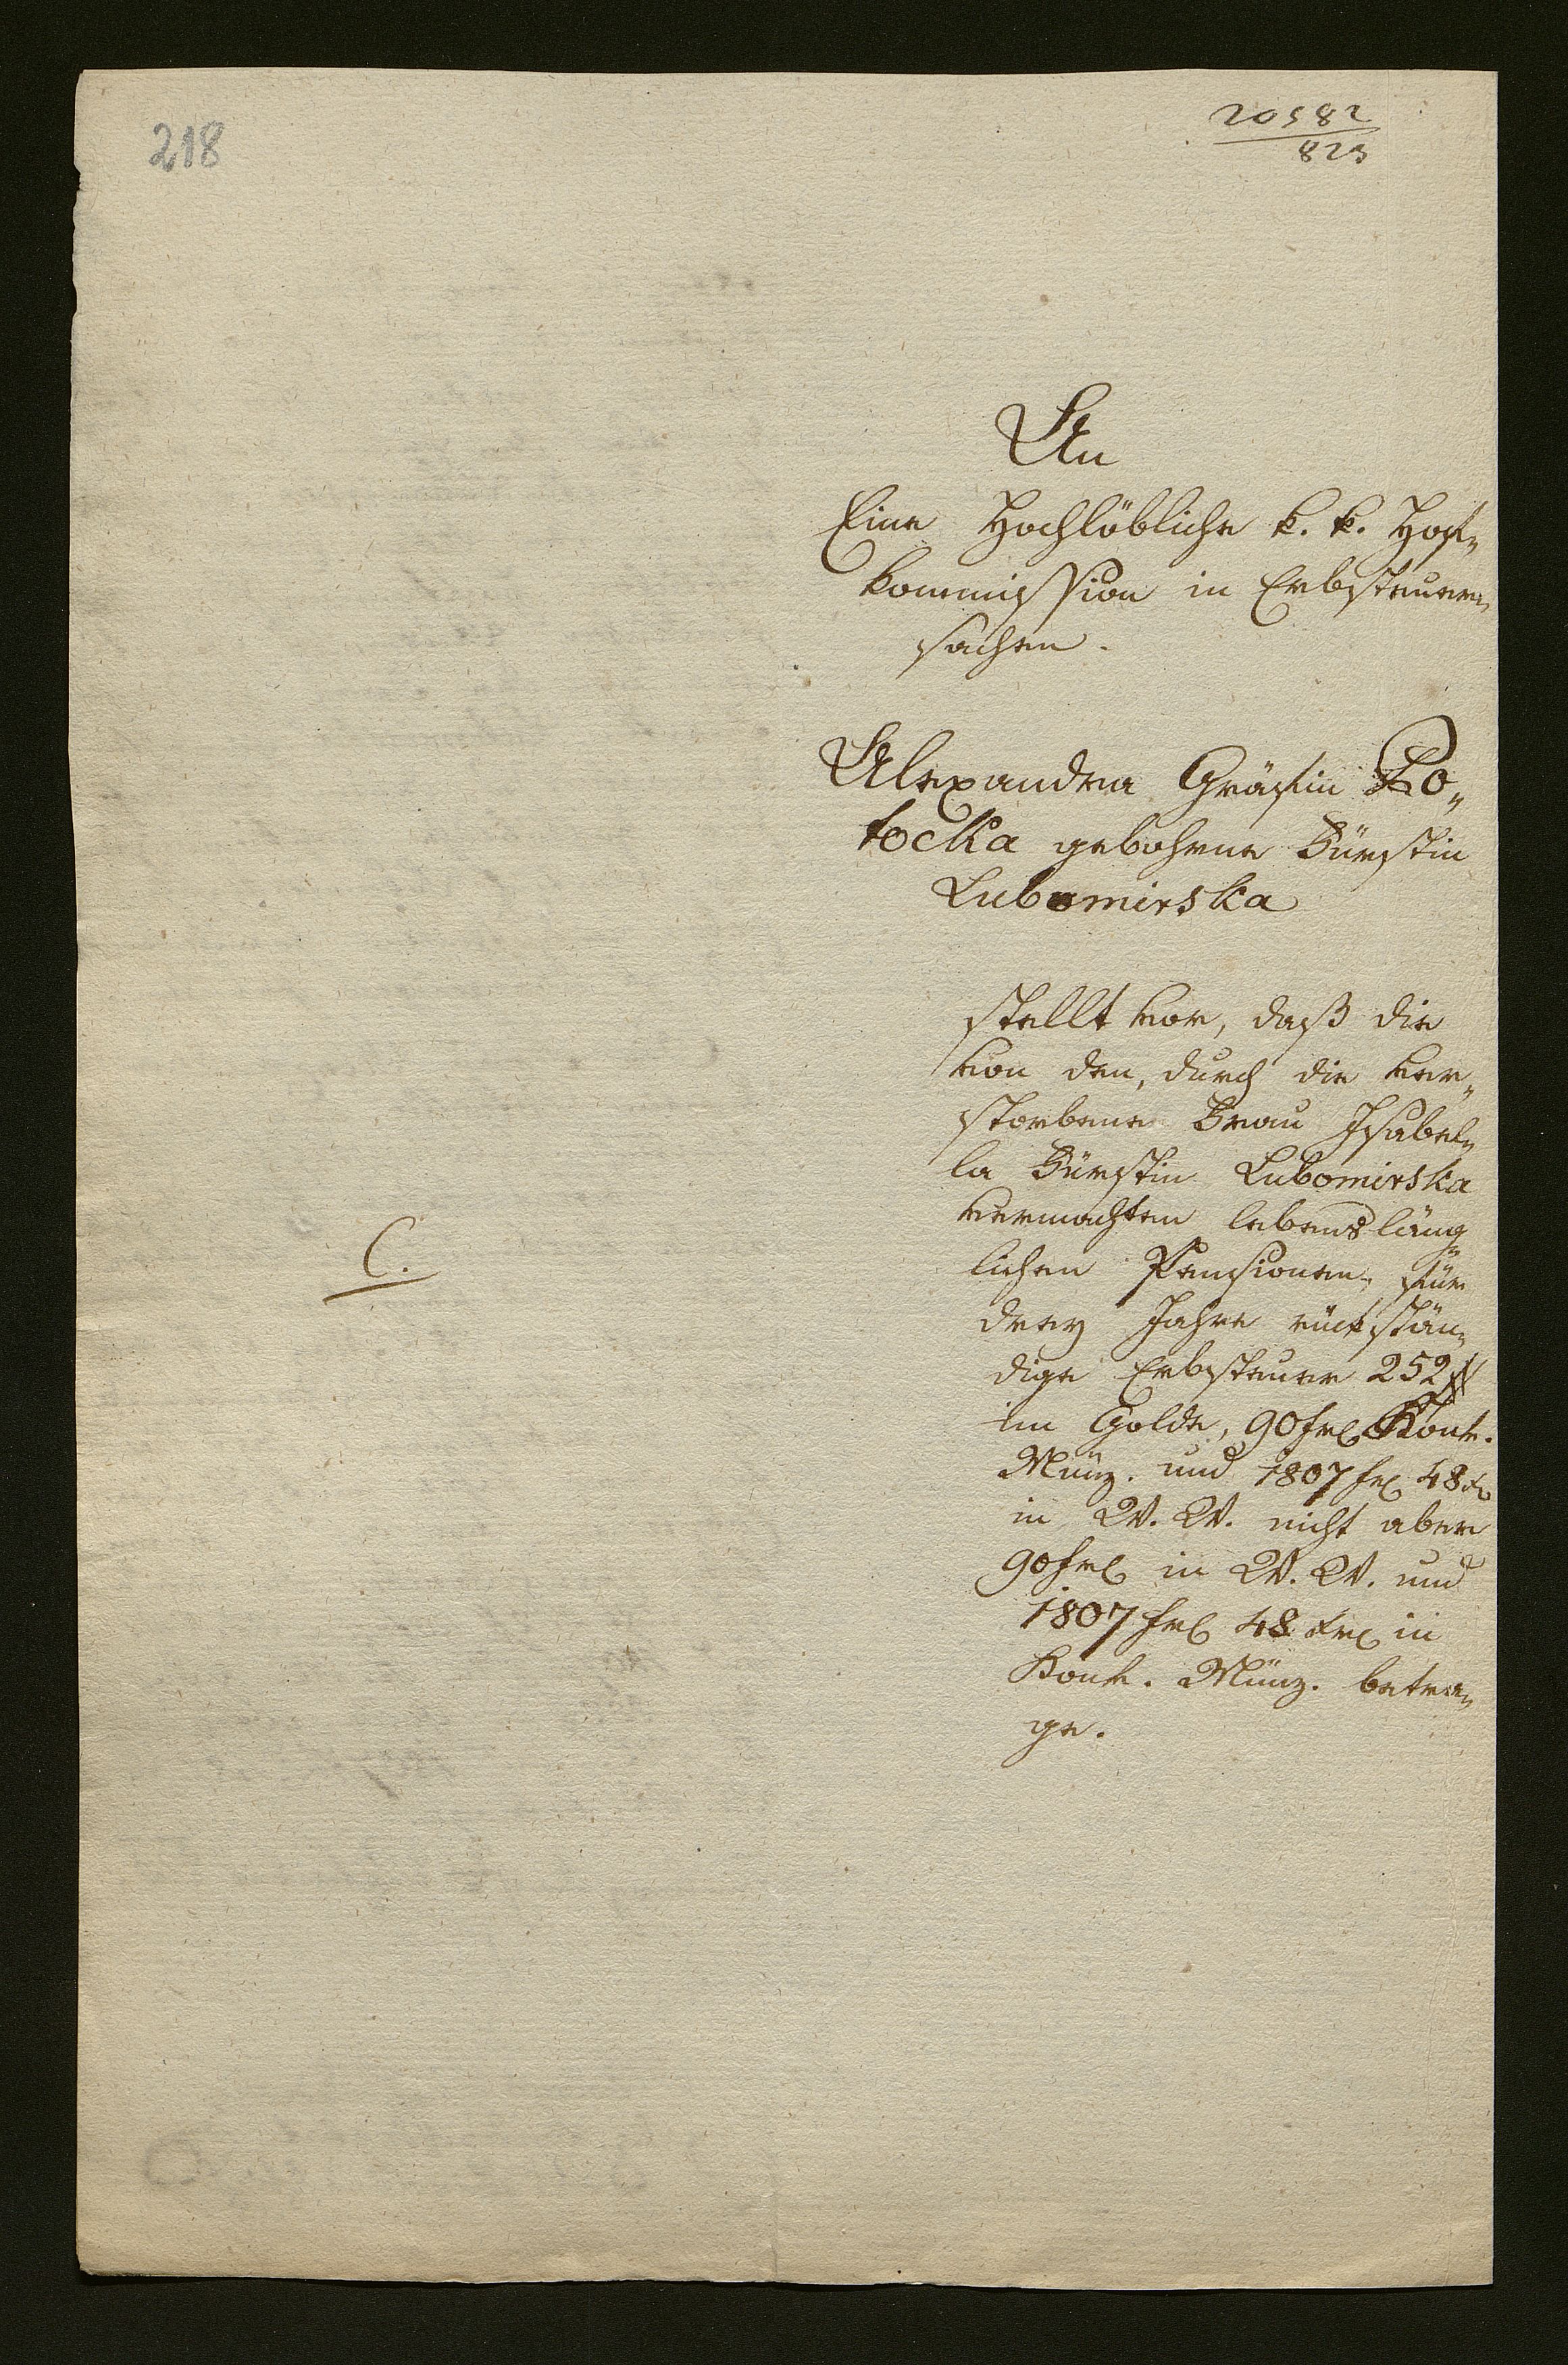 218
20582
823
An
Eine Hochlöbliche k. k. Hof„
kommission in Erbsteuer„
sachen.
Alexandra Gräfin Po„
tocka gebohrne Fürstin
Lubomirska
stellt vor, daß die
von den, durch die ver„
storbene Frau Isabel„
la Fürstin Lubomirska
vermachten lebensläng„
lichen Pensionen, für
drey Jahre rückstän„
dige Erbsteuer 252 #
im Golde, 90 fr Konv.
Münz. und 1807 fr 48 x
in W. W. nicht aber
90 fr in W. W. und
1807 fr 48 xr in
Konv. Münz. betra„
ge.
C.